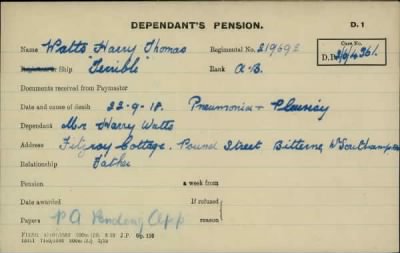 DEPENDANT'S PENSION.
D. 1
Name Watts Harry Thomas Regimental No. 219692
Case No.
Ship "Terrible" Rank A.B.
Documents received from Paymaster
Date and cause of death 22-9-18. Pneumonia + Pleurisy
Dependant Mr Harry Watts
Address Fitzroy Cottage. Pound Street Bitterne, Southampton
Relationship Father
Pension a week from
Date awarded If refused
Papers P.A. Pending App reason